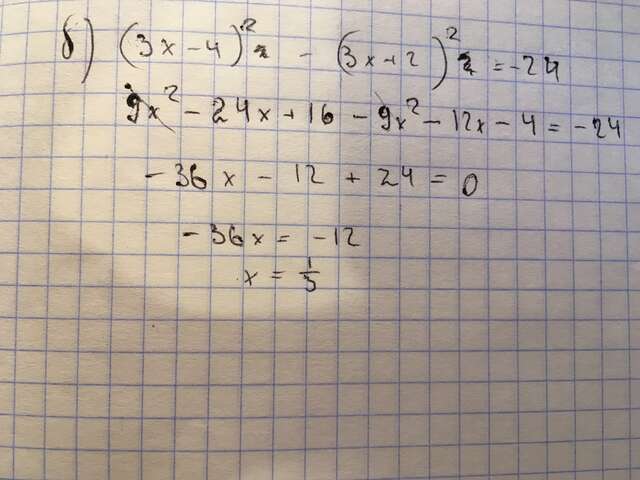 б) (3x-4)² - (3x+2)² = -24
9x² - 24x + 16 - 9x² - 12x - 4 = -24
-36x - 12 + 24 = 0
-36x = -12
x = 1/3